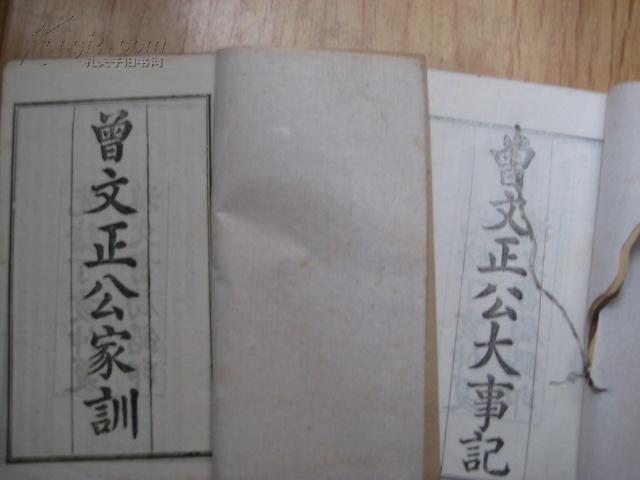 曾文正公家訓
曾文正公大事記
孔夫子旧书网